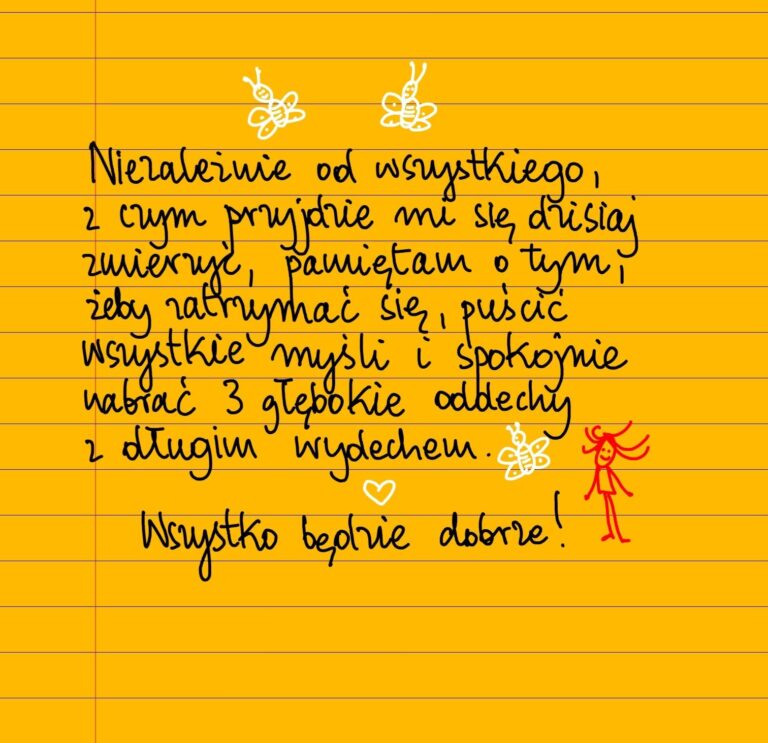 Niezależnie od wszystkiego,
z czym przyjdzie mi się dzisiaj
zmierzyć, pamiętam o tym,
żeby zatrzymać się, puścić
wszystkie myśli i spokojnie
nabrać 3 głębokie oddechy
z długim wydechem.
Wszystko będzie dobrze!